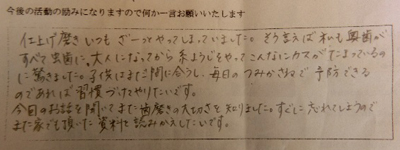 今後の活動の励みになりますので何か一言お願いいたします
仕上げ磨きいつもざーっとやってしまっていました。そういえば私も奥歯が
すべて虫歯に、大人になってから糸ようじをやってこんなにカスがたまっているの
に驚きました。子供はまだ間に合うし、毎日のつみかさねで予防できる
のであれば習慣づけてやりたいです。
今回のお話を聞いてまた歯磨きの大切さを知りました。すぐに忘れてしまうので
また家でも頂いた資料を読みかえしたいです。